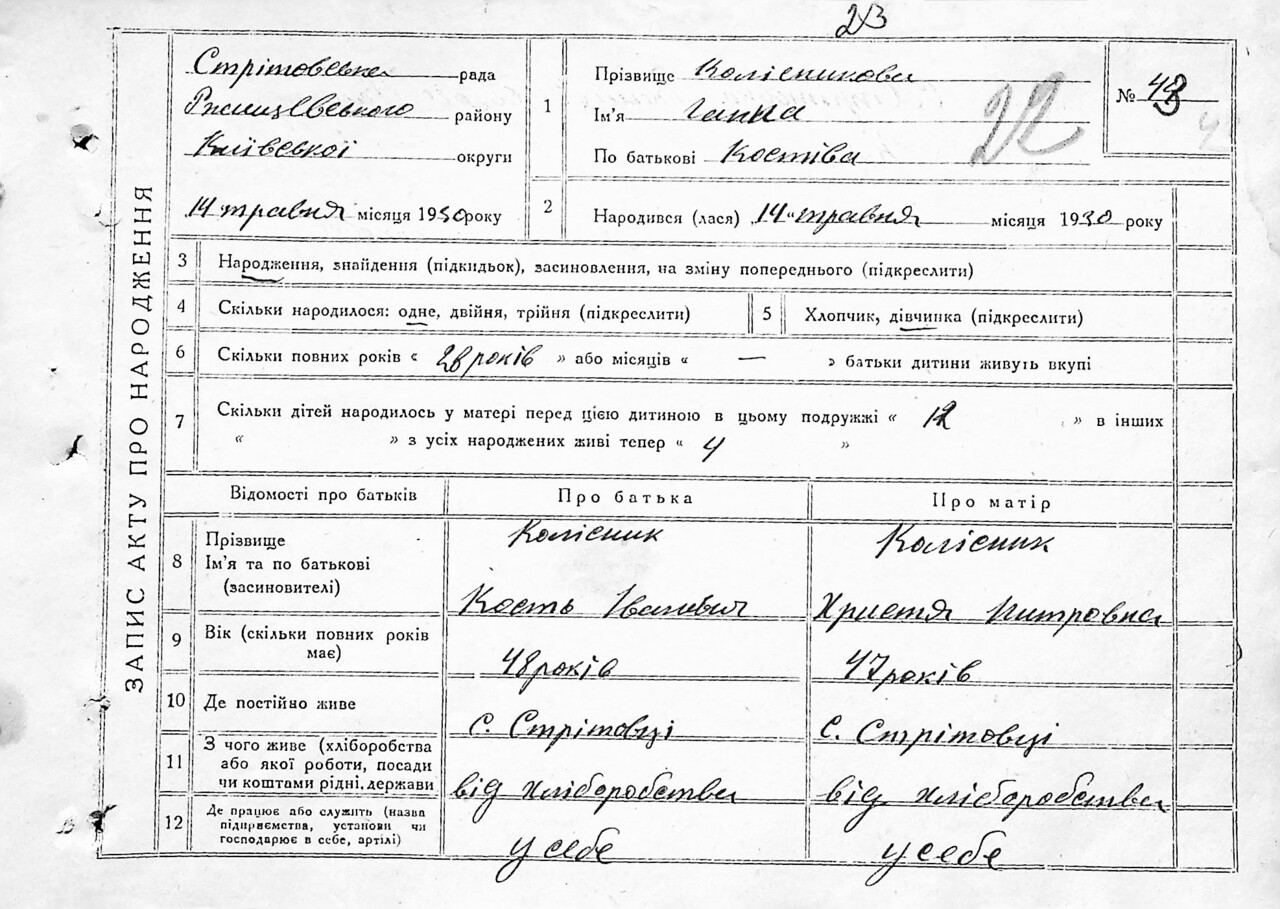 23
ЗАПИС АКТУ ПРО НАРОДЖЕННЯ
Стрітовська рада
Ржищевського району
Київської округи
14 травня місяця 1930 року
1 Прізвище Колісникова
Ім'я Ганна
По батькові Костівна
22
№ 43
2 Народився (лася) 14 травня місяця 1930 року
3 Народження, знайдення (підкидьок), засиновлення, на зміну попереднього (підкреслити)
4 Скільки народилося: одне, двійня, трійня (підкреслити)
5 Хлопчик, дівчинка (підкреслити)
6 Скільки повних років « 28 років » або місяців « — » батьки дитини живуть вкупі
7 Скільки дітей народилось у матері перед цією дитиною в цьому подружжі « 12 » в інших
« » з усіх народжених живі тепер « 4 »
Відомості про батьків Про батька Про матір
8 Прізвище Колісник Колісник
Ім'я та по батькові
(засиновителі) Кость Іванович Христя Митровна
9 Вік (скільки повних років
має) 48 років 47 років
10 Де постійно живе с. Стрітовці с. Стрітовці
11 З чого живе (хліборобства
або якої роботи, посади
чи коштами рідні, держави від хліборобства від хліборобства
12 Де працює або служить (назва
підприємства, установи чи
господарює в себе, артілі) у себе у себе